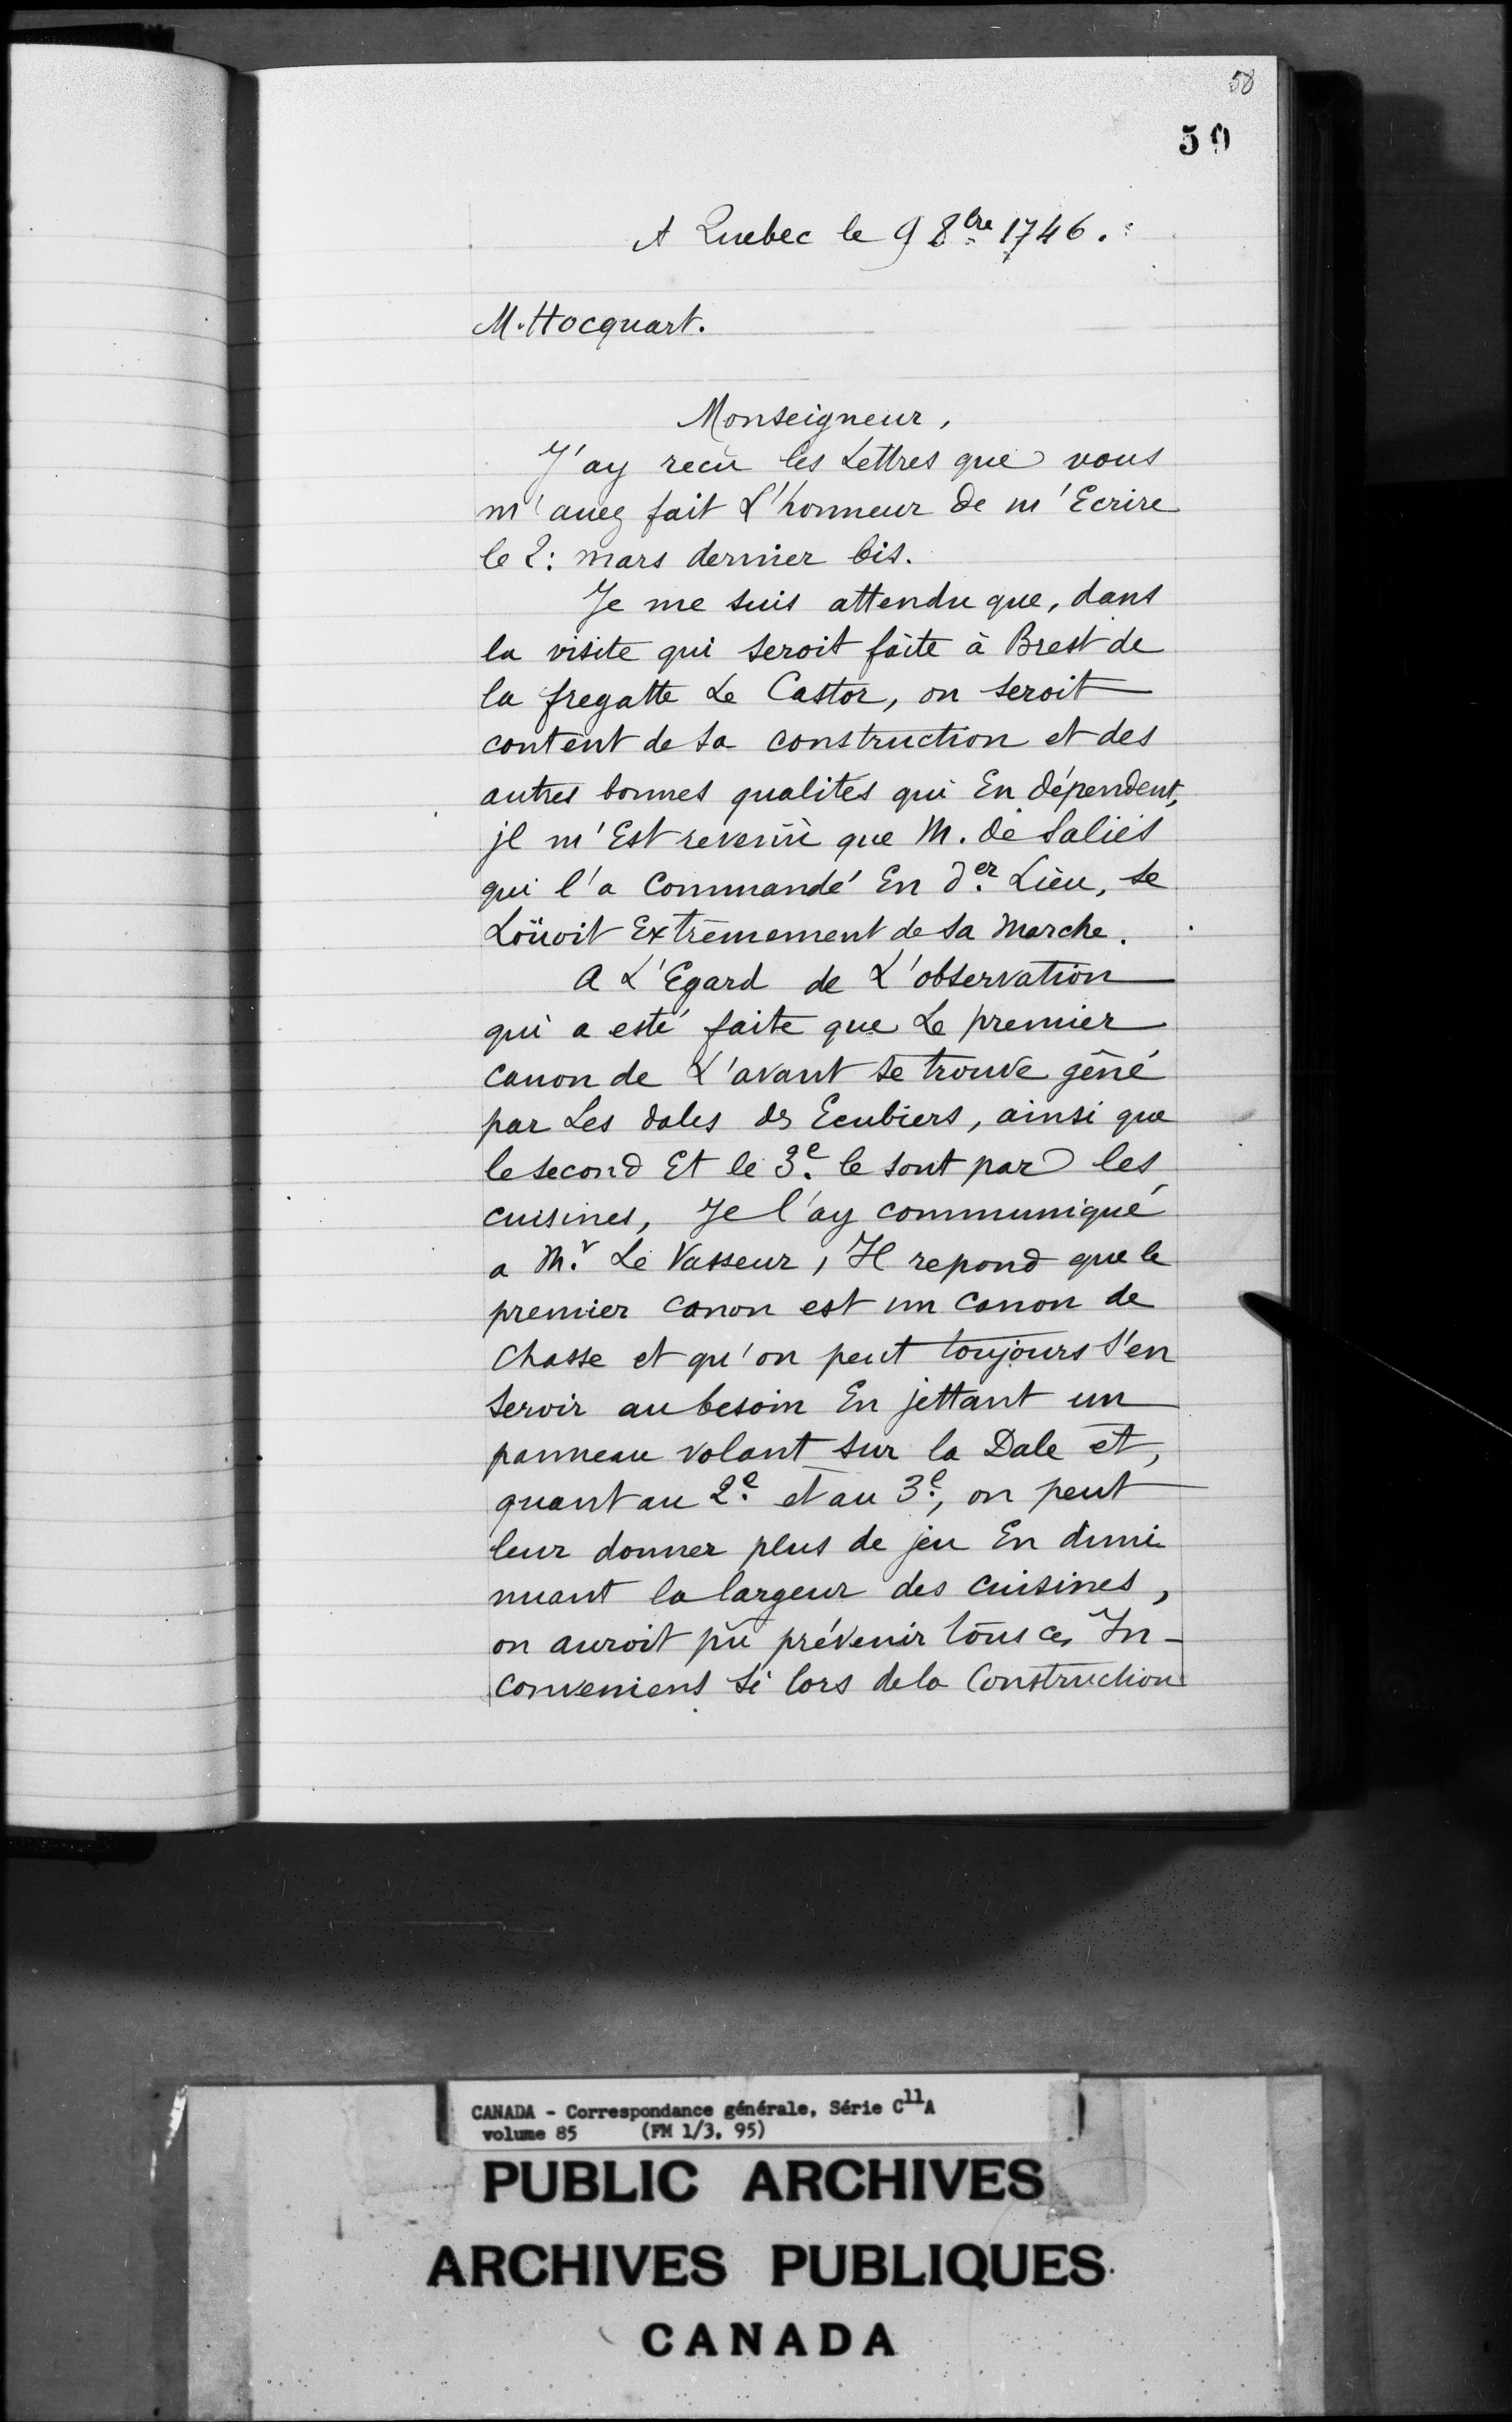 58
59
A Quebec le 9 8bre 1746.
M. Hocquart.
Monseigneur,
J'ay recû les Lettres que vous
m'auez fait L'honneur de m'Ecrire
le 2: mars dernier bis.
Je me suis attendu que, dans
la visite qui seroit faite à Brest de
la fregatte Le Castor, on seroit
content de sa construction et des
autres bonnes qualités qui En dépendent,
jl m'Est revenü que M. de Saliés
qui l'a Commandé En der. Lieu, se
Loüoit Extrèmement de sa Marche.
A L'Egard de L'observation
qui a esté faite que Le premier
canon de L'avant se trouve gêné
par Les dales des Ecubiers, ainsi que
le second Et le 3e. le sont par les
cuisines, Je l'ay communiqué
a Mr. Le Vasseur, Il repond que le
premier canon est un canon de
Chasse et qu'on peut toujours s'en
servir au besoin En jettant un
panneau volant sur la Dale et,
quant au 2e. et au 3e., on peut
leur donner plus de jeu En dimi
nuant la largeur des cuisines,
on auroit pû prévenir tous ces In-
conveniens si lors de la Construction
CANADA - Correspondance générale, Série C11A
volume 85 (FM 1/3, 95)
PUBLIC ARCHIVES
ARCHIVES PUBLIQUES
CANADA